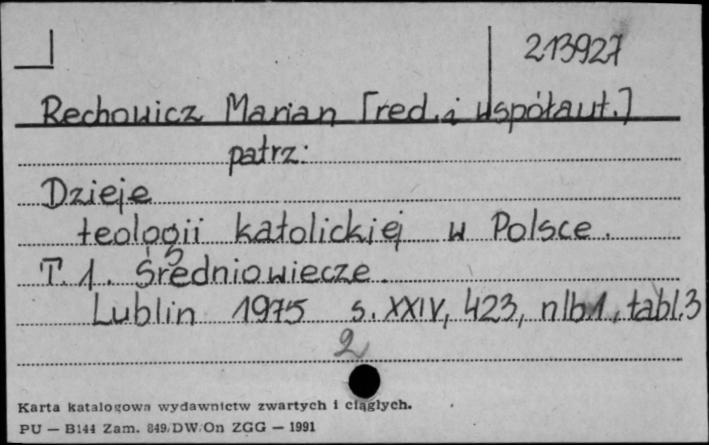 213927
Rechowicz Marian [red. i współaut.]
patrz:
Dzieje
teologii katolickiej w Polsce.
T. 1. Średniowiecze.
Lublin 1975 s. XXIV, 423, nlb 1, tabl. 3
2
Karta katalogowa wydawnictw zwartych i ciągłych.
PU — B144 Zam. 849/DW/On ZGG — 1991